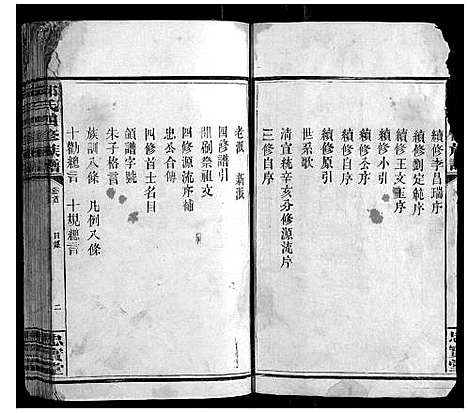 續修李昌瑞序
續修劉定範序
續修王文重序
續修公序
續修小引
續修原引
世系歌
清宣統辛亥分修源流序
三修自序
老派 新派
四修譜引
開祠祭祖文
四修源流序補
忠公合傳
四修首士名目
領譜字號
朱子格言
族訓八條 凡例八條
十勸總言 十規總言
氏四修族譜
卷首
目錄
二
忠實堂